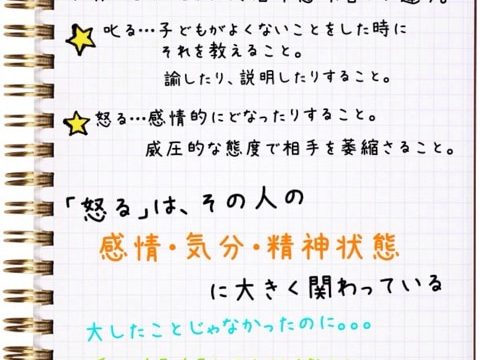 叱る…子どもがよくないことをした時に
それを教えること。
諭したり、説明したりすること。
怒る…感情的にどなったりすること。
威圧的な態度で相手を萎縮さること。
「怒る」は、その人の
感情・気分・精神状態
に大きく関わっている
大したことじゃなかったのに。。。